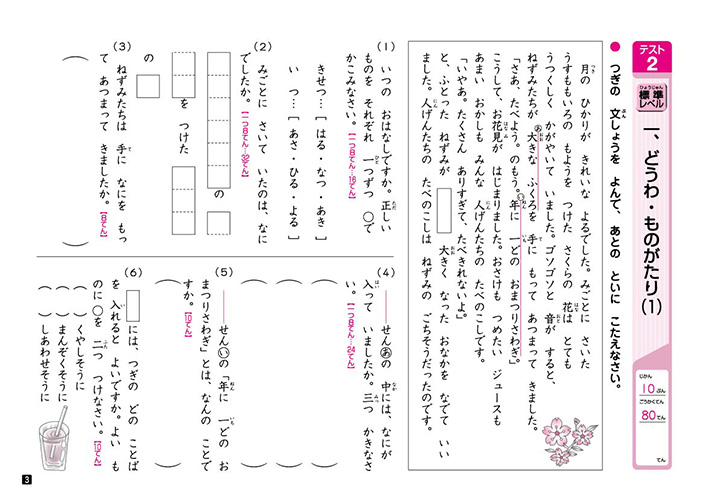 テスト2
標準レベル
ひょうじゅん
一、どうわ・ものがたり(1)
じかん
10ぷん
ごうかくてん
80てん
てん
● つぎの 文しょうを よんで、あとの といに こたえなさい。
月の ひかりが きれいな よるでした。みごとに さいた
うすももいろの もようを つけた さくらの 花は とても
うつくしく かがやいて いました。ゴソゴソと 音が すると、
ねずみたちが 大きな ふくろを 手に もって あつまって きました。
「さあ、たべよう。のもう。年に 一どの おまつりさわぎ。
こうして、お花見が はじまりました。おさけも つめたい ジュースも
あまい おかしも みんな 人げんたちの たべのこしです。
「いやあ。たくさん ありすぎて、たべきれないよ。」
と、ふとった ねずみが
大きく なった おなかを なでて いい
ました。人げんたちの たべのこしは ねずみの ごちそうだったのです。
(1) いつの おはなしですか。正しい
ものを それぞれ 一つずつ ○で
かこみなさい。【一つ8てん…16てん】
きせつ…[はる・なつ・あき]
いつ…[あさ・ひる・よる]
(2) みごとに さいて いたのは、なに
でしたか。【一つ8てん…32てん】
の
を つけた
の
(3) ねずみたちは 手に なにを もっ
て あつまって きましたか。【8てん】
( )
(4) ――せんあの 中には、なにが
入って いましたか。三つ かきなさ
い。【一つ8てん…24てん】
( )
( )
( )
(5) ――せんいの「年に 一どの お
まつりさわぎ」とは、なんの ことで
すか。【10てん】
( )
(6) □には、つぎの どの ことば
を 入れると よいですか。よい も
のに○を 二つ つけなさい。【10てん】
( )くやしそうに
( )まんぞくそうに
( )しあわせそうに
3